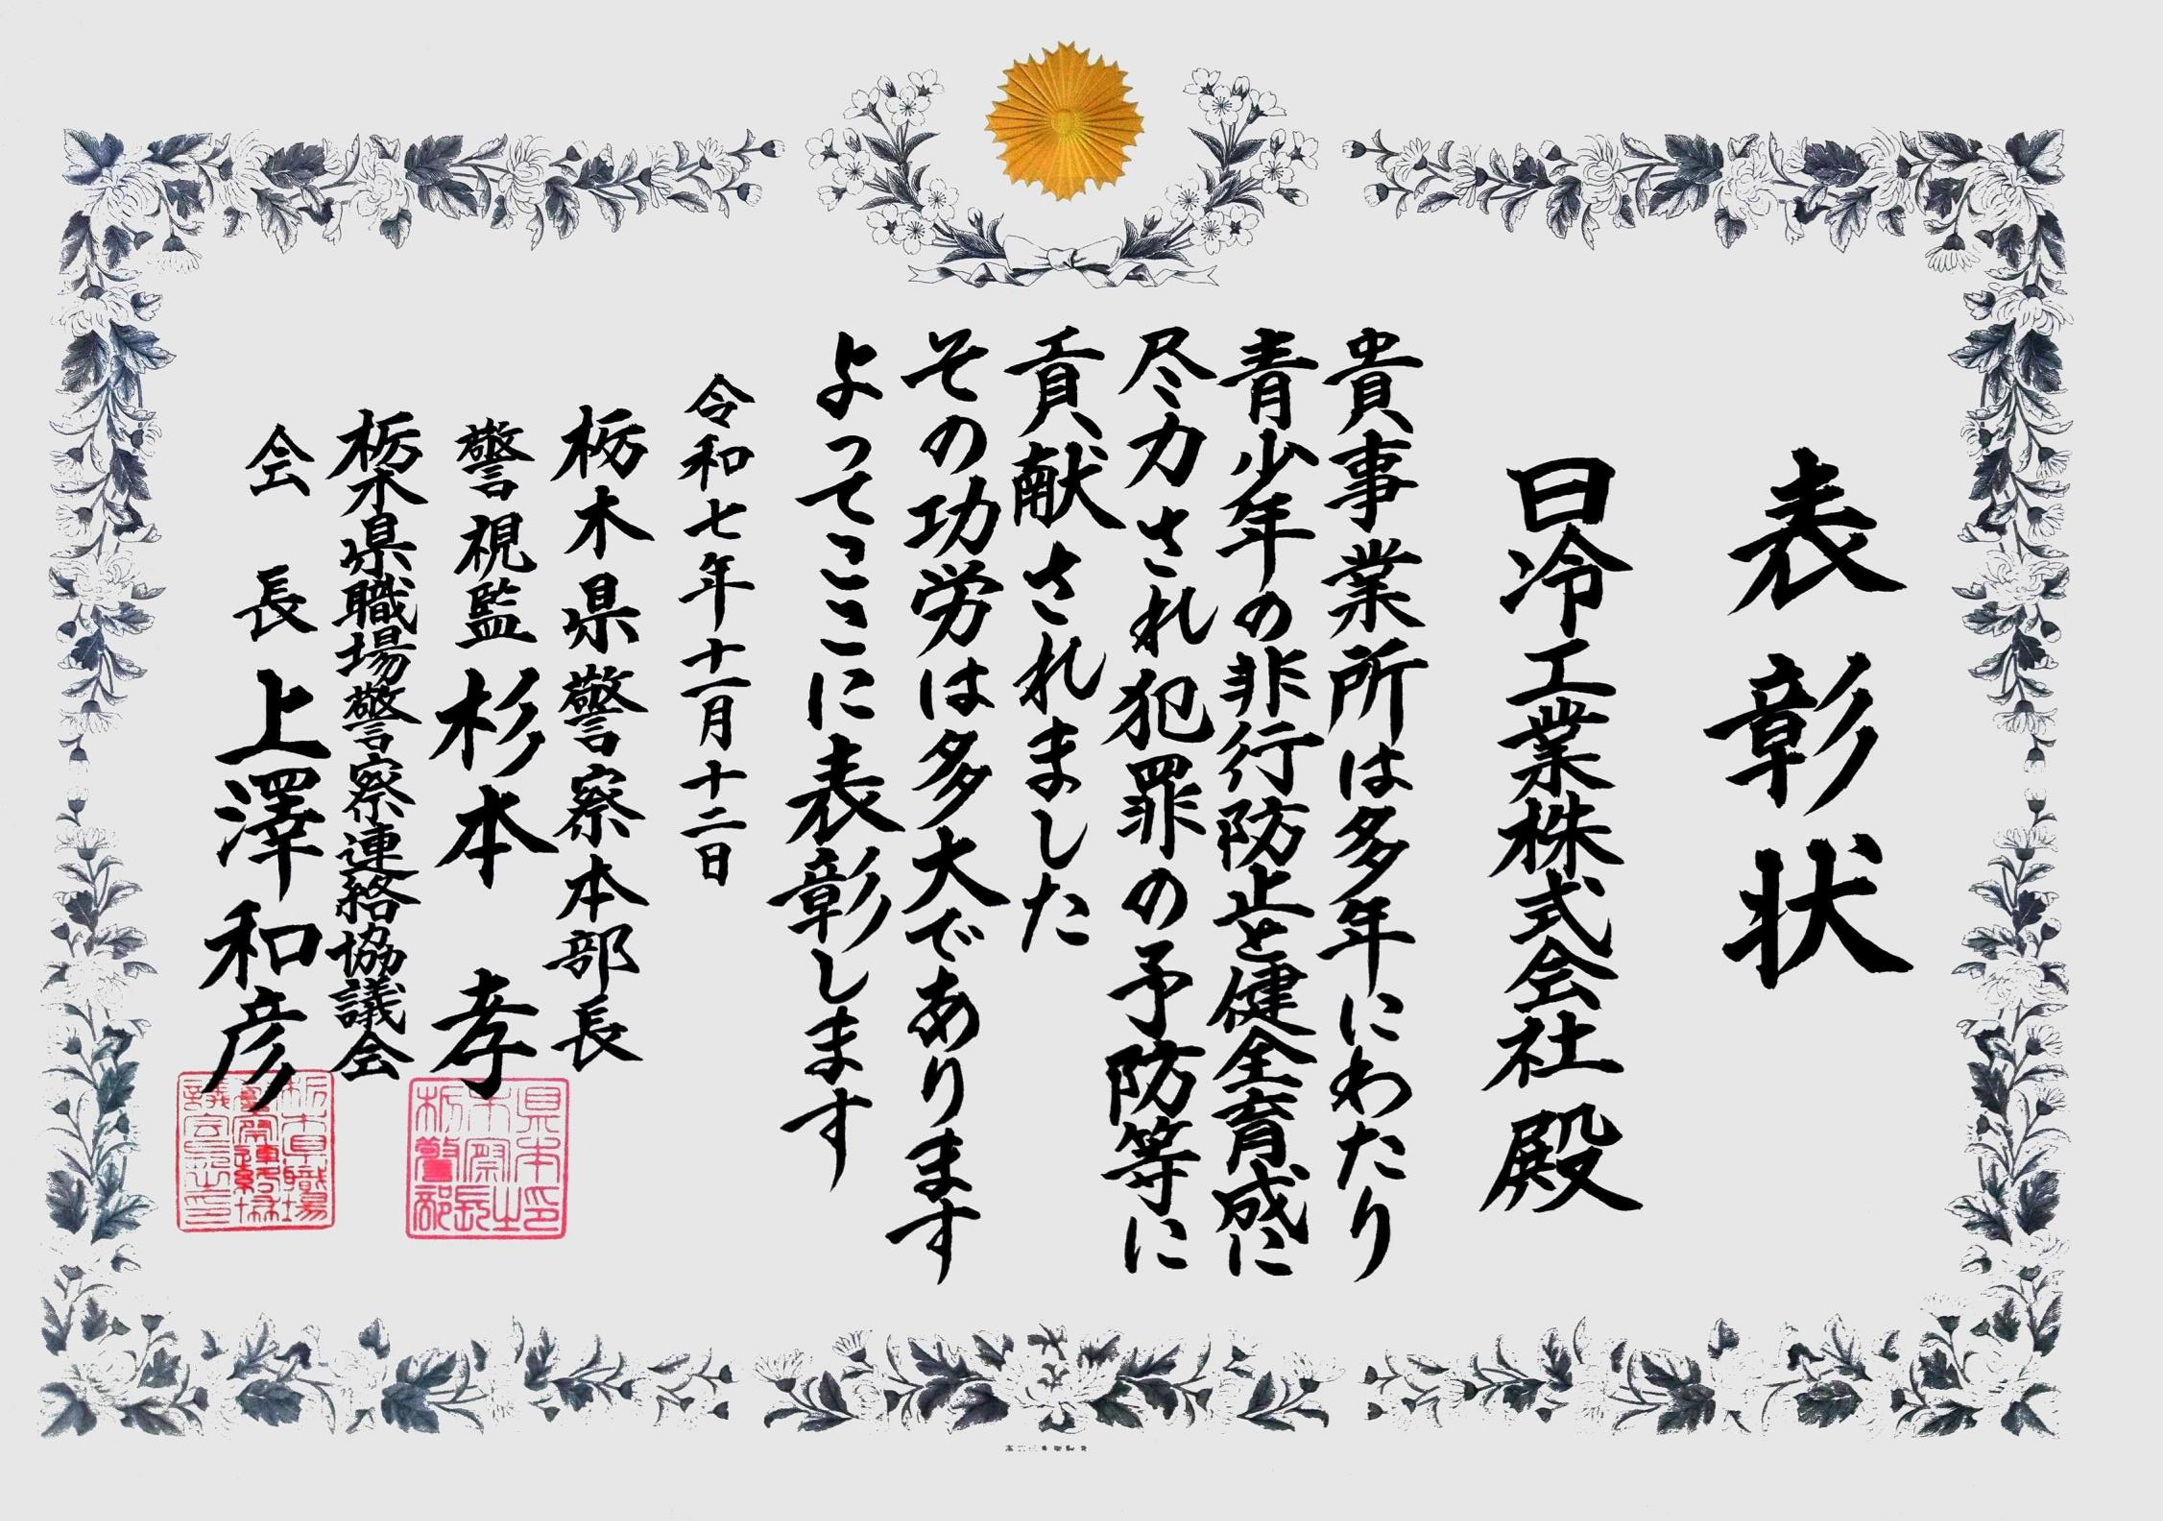 表彰状
日冷工業株式会社 殿
貴事業所は多年にわたり
青少年の非行防止と健全育成に
尽力され犯罪の予防等に
貢献されました
その功労は多大であります
よってここに表彰します
令和七年十一月十二日
栃木県警察本部長
警視監 杉本 孝
栃木県職場警察連絡協議会
会長 上澤和彦